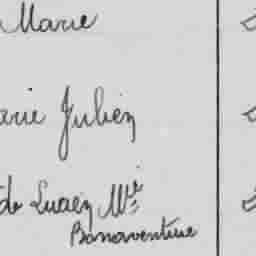 Marie
arie Julien
de Lucien Mie
Bonaventure